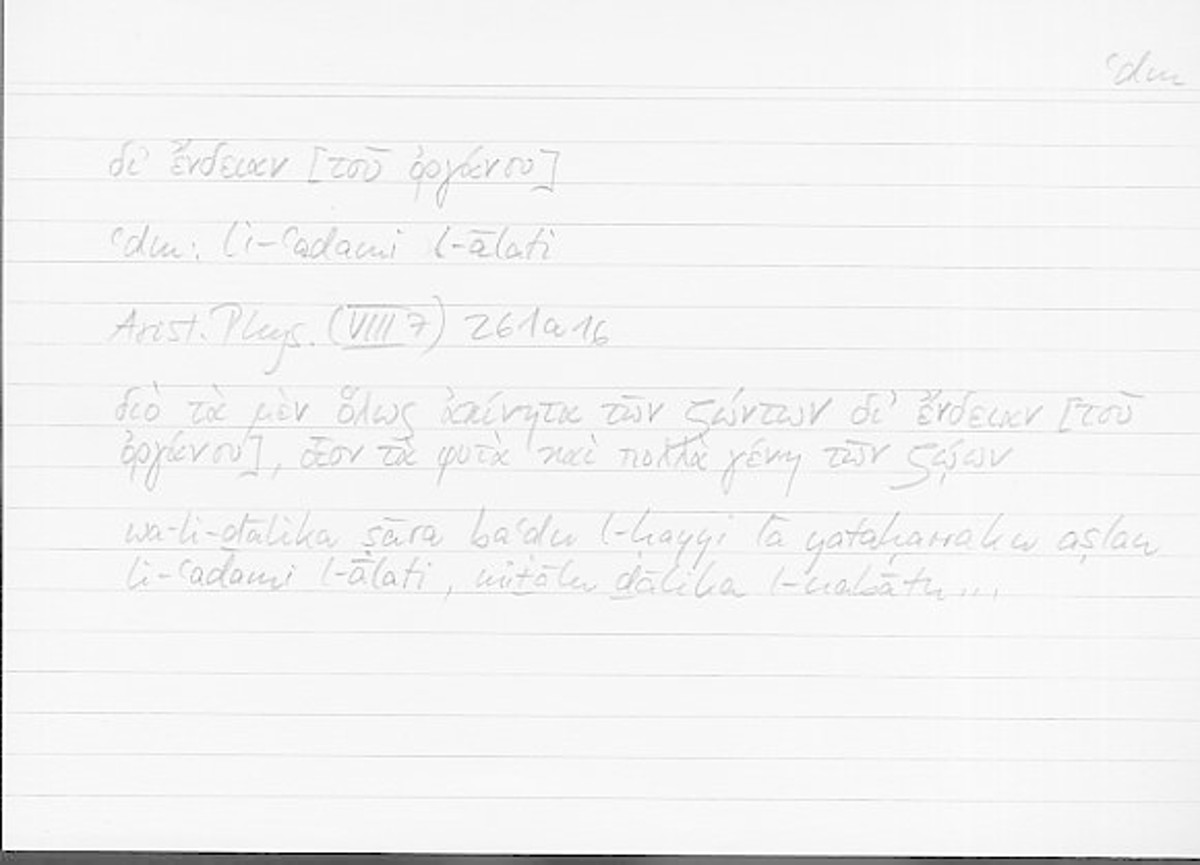 ʿdm
δι' ἔνδειαν [τοῦ ὀργάνου]
ʿdm: li-ʿadami l-ālati
Arist. Phys. (VIII 7) 261a16
διὸ τὰ μὲν ὅλως ἀκίνητα τῶν ζώντων δι' ἔνδειαν [τοῦ
ὀργάνου], οἷον τὰ φυτὰ καὶ πολλὰ γένη τῶν ζῴων
wa-li-ḏālika ṣāra baʿḍu l-ḥayyi lā yataḥarraku aṣlan
li-ʿadami l-ālati, miṯālu ḏālika l-nabātu...